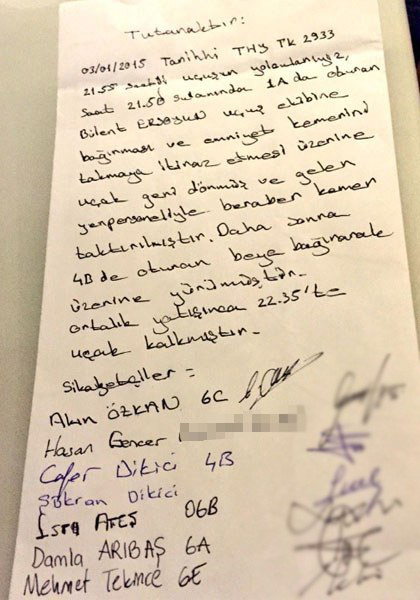 Tutanaktır:
03/01/2015 Tarihli THY TK 2933
21.55 saatli uçuşun yolcularıyız,
Saat 21.50 sularında 1A da oturan
Bülent ERSOYUN uçuş ekibine
bağırması ve emniyet kemerini
takmaya itiraz etmesi üzerine
uçak geri dönmüş ve gelen
yerpersoneliyle beraber kemer
taktırılmıştır. Daha sonra
4B de oturan beye bağırarak
üzerine yürümüştür.
ortalık yatışınca 22.35'te
uçak kalkmıştır.
Şikayetçiler =
Akın ÖZKAN 6C
Hasan Gencer
Cafer Dikici 4B
Şükran Dikici
Esra ATEŞ 06B
Damla ARIBAŞ 6A
Mehmet Tekince 6E